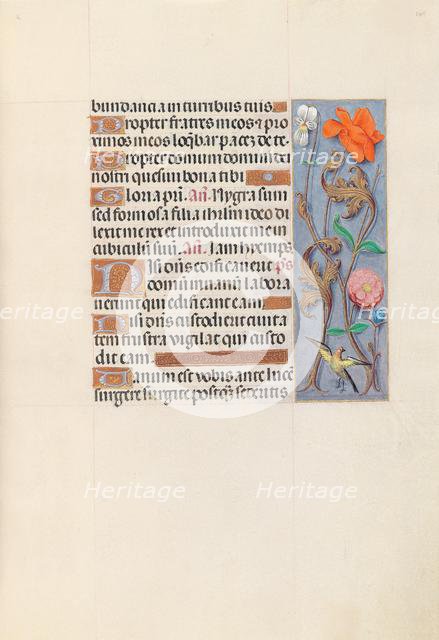 bundancia in turribus tuis
Propter fratres meos ⁊ pro
ximos meos loq̄bar pacez de te
Propter domum domini dei
nostri quesiui bona tibi
Gloria pr̄i. An̄. Nygra sum
sed formosa filia ihrl̄m ideo di
lexit me rex et introduxit me in
cubiculū suū. An̄. Iam hyemps. ps
Nisi dn̄s edificauerit
domū in vanū labora
uerunt qui edificant eam
Nisi dn̄s custodierit ciuita
tem frustra vigilat qui custo
dit eam
Vanum est vobis ante lucē
surgere surgite postq̄ sederitis
Heritage
Heritage
Heritage
Heritage
Heritage
Heritage